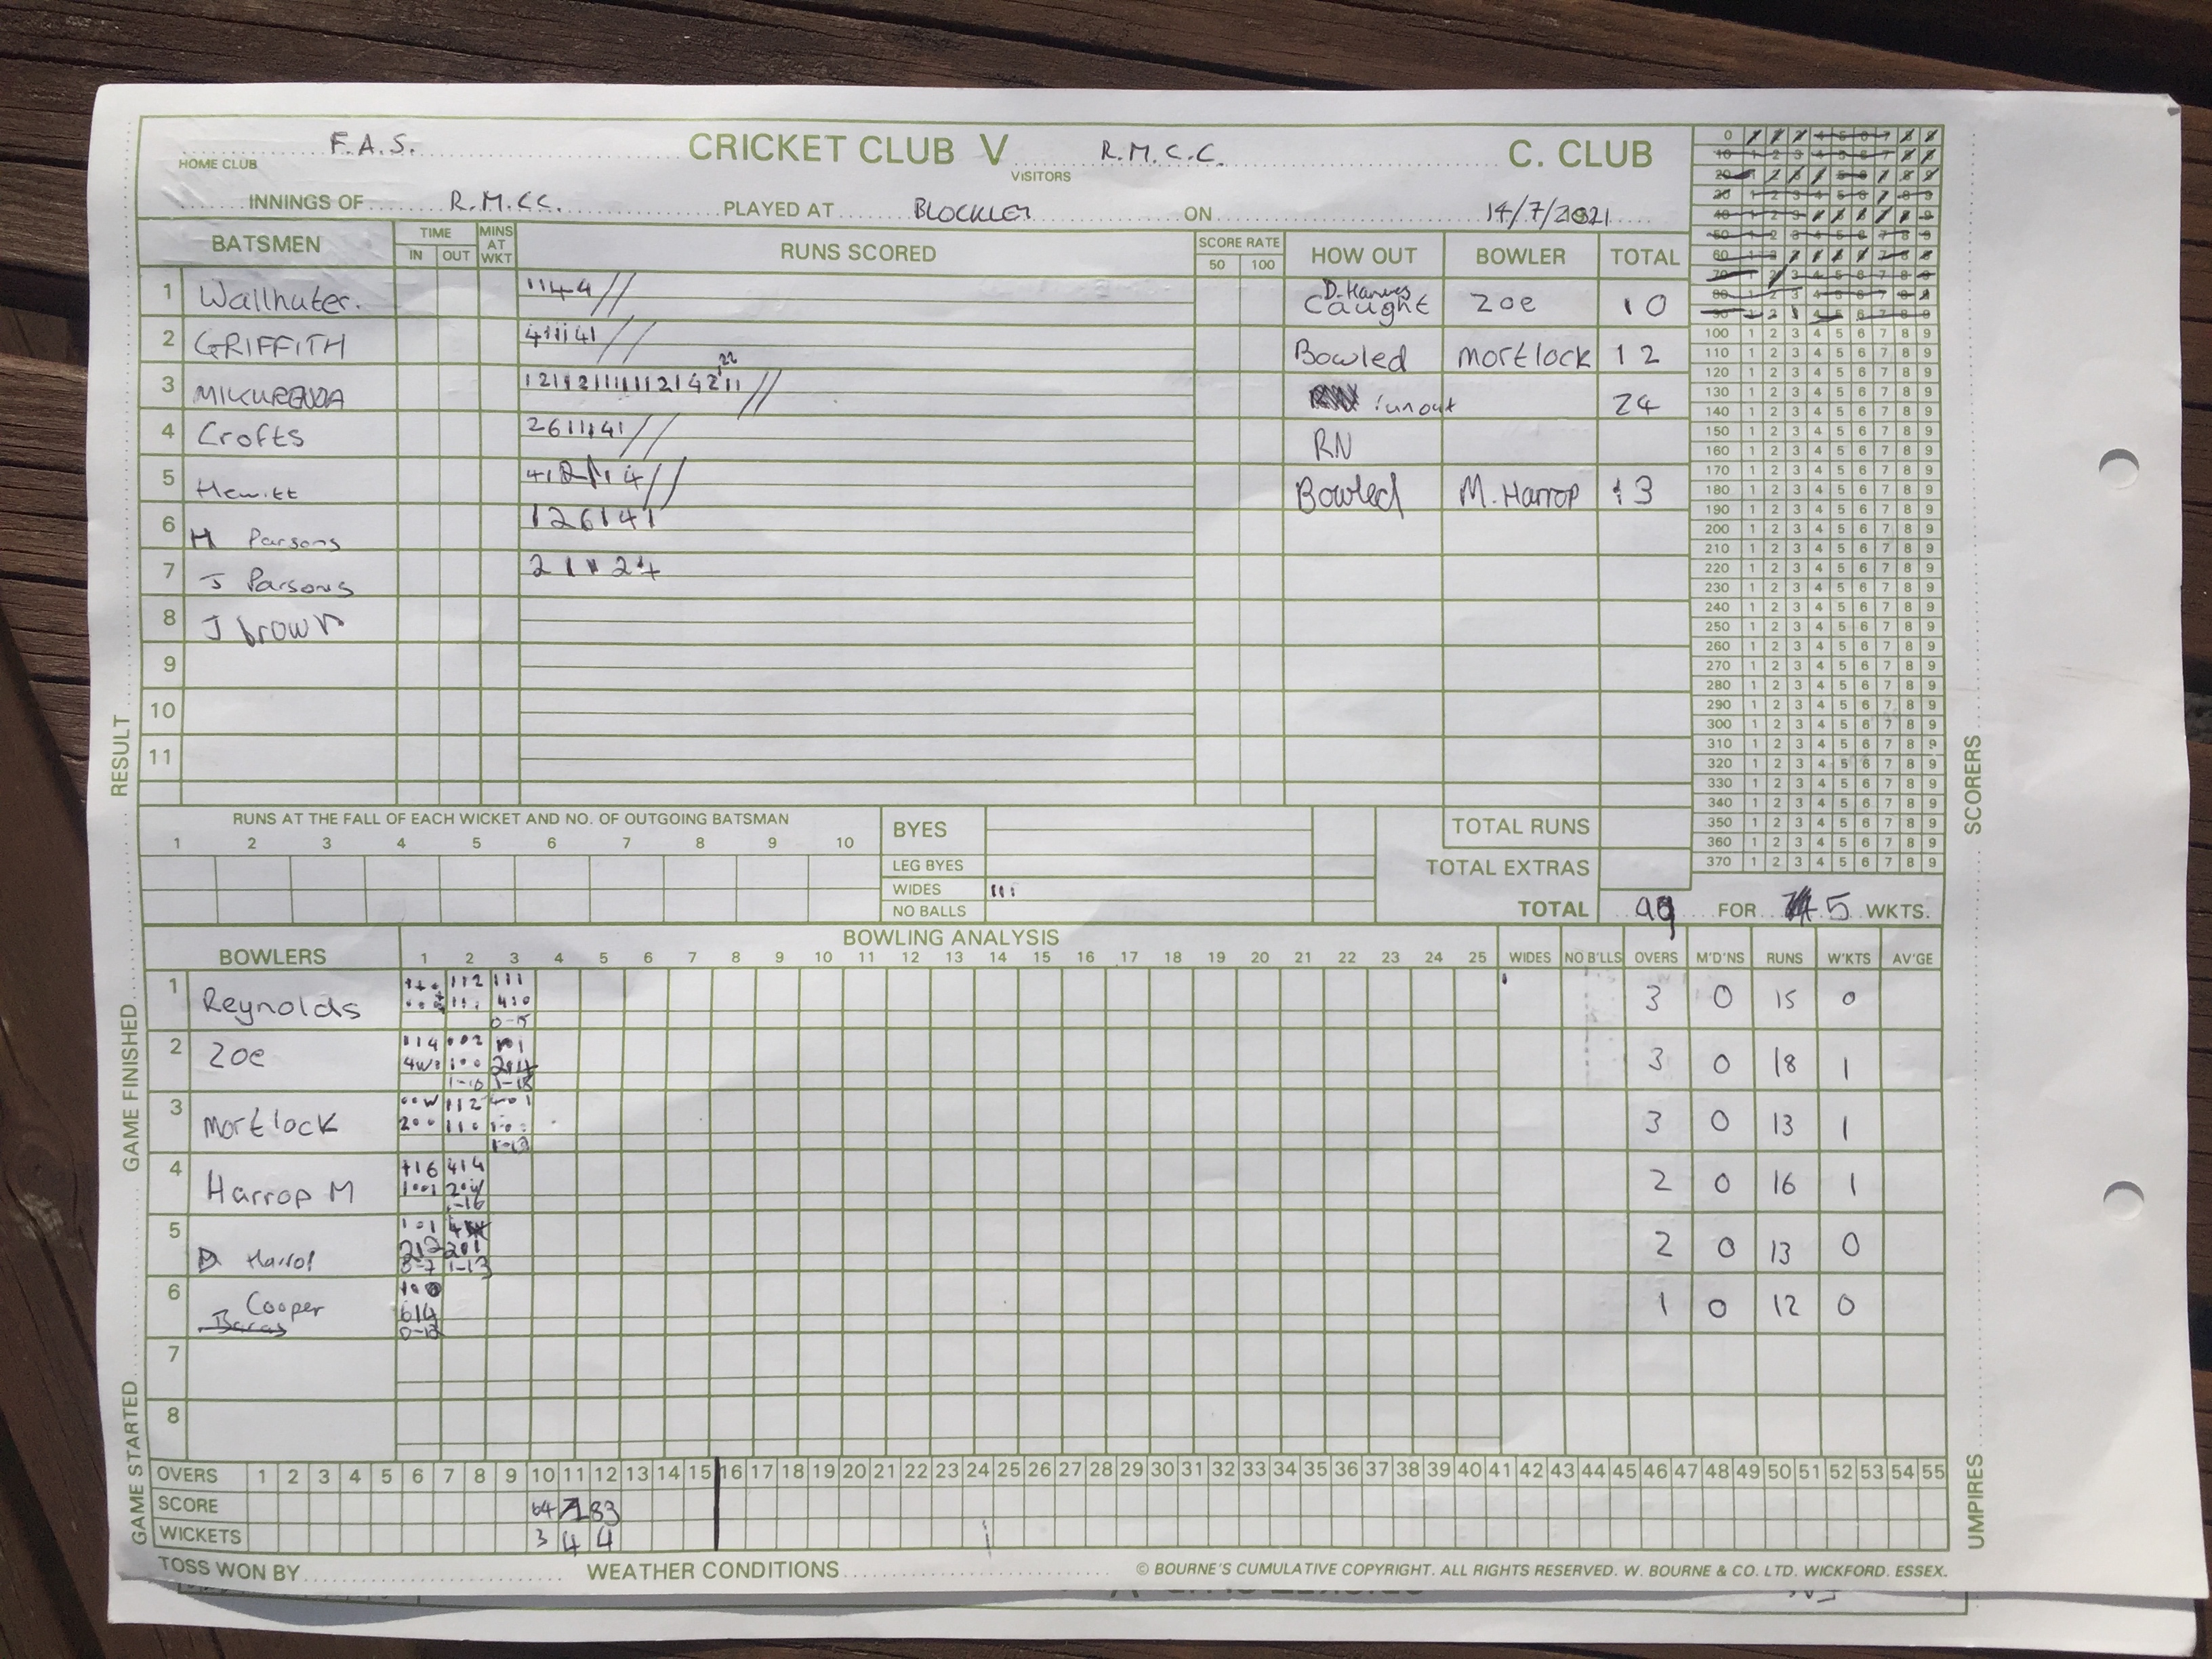 F.A.S. CRICKET CLUB V R.M.C.C. C. CLUB
HOME CLUB VISITORS
INNINGS OF R.M.CC. PLAYED AT BLOCKLEY ON 14/7/2021
BATSMEN TIME MINS AT WKT RUNS SCORED SCORE RATE HOW OUT BOWLER TOTAL
IN OUT 50 100
1 Wallhuter. 1144 // Caught Zoe 10
2 GRIFFITH 411141 // Bowled mortlock 12
3 // run out 24
4 Crofts 2611141 // RN
5 Hewitt // Bowled M.Harrop 13
6 H Parsons 126141
7 J Parsons
8 J brown
9
10
11
0 1 2 3 4 5 6 7 8 9
10 1 2 3 4 5 6 7 8 9
20 1 2 3 4 5 6 7 8 9
30 1 2 3 4 5 6 7 8 9
40 1 2 3 4 5 6 7 8 9
50 1 2 3 4 5 6 7 8 9
60 1 2 3 4 5 6 7 8 9
70 1 2 3 4 5 6 7 8 9
80 1 2 3 4 5 6 7 8 9
90 1 2 3 4 5 6 7 8 9
100 1 2 3 4 5 6 7 8 9
110 1 2 3 4 5 6 7 8 9
120 1 2 3 4 5 6 7 8 9
130 1 2 3 4 5 6 7 8 9
140 1 2 3 4 5 6 7 8 9
150 1 2 3 4 5 6 7 8 9
160 1 2 3 4 5 6 7 8 9
170 1 2 3 4 5 6 7 8 9
180 1 2 3 4 5 6 7 8 9
190 1 2 3 4 5 6 7 8 9
200 1 2 3 4 5 6 7 8 9
210 1 2 3 4 5 6 7 8 9
220 1 2 3 4 5 6 7 8 9
230 1 2 3 4 5 6 7 8 9
240 1 2 3 4 5 6 7 8 9
250 1 2 3 4 5 6 7 8 9
260 1 2 3 4 5 6 7 8 9
270 1 2 3 4 5 6 7 8 9
280 1 2 3 4 5 6 7 8 9
290 1 2 3 4 5 6 7 8 9
300 1 2 3 4 5 6 7 8 9
310 1 2 3 4 5 6 7 8 9
320 1 2 3 4 5 6 7 8 9
330 1 2 3 4 5 6 7 8 9
340 1 2 3 4 5 6 7 8 9
350 1 2 3 4 5 6 7 8 9
360 1 2 3 4 5 6 7 8 9
370 1 2 3 4 5 6 7 8 9
RUNS AT THE FALL OF EACH WICKET AND NO. OF OUTGOING BATSMAN
1 2 3 4 5 6 7 8 9 10
BYES TOTAL RUNS
LEG BYES TOTAL EXTRAS
WIDES
NO BALLS TOTAL 99 FOR 5 WKTS.
BOWLING ANALYSIS
BOWLERS 1 2 3 4 5 6 7 8 9 10 11 12 13 14 15 16 17 18 19 20 21 22 23 24 25 WIDES NO B'LLS OVERS M'D'NS RUNS W'KTS AV'GE
1 Reynolds 3 0 15 0
2 Zoe 3 0 18 1
3 mortlock 3 0 13 1
4 Harrop M 2 0 16 1
5 D 2 0 13 0
6 Cooper 1 0 12 0
7
8
OVERS 1 2 3 4 5 6 7 8 9 10 11 12 13 14 15 16 17 18 19 20 21 22 23 24 25 26 27 28 29 30 31 32 33 34 35 36 37 38 39 40 41 42 43 44 45 46 47 48 49 50 51 52 53 54 55
SCORE 64 71 83
WICKETS 3 4 4
TOSS WON BY WEATHER CONDITIONS © BOURNE'S CUMULATIVE COPYRIGHT. ALL RIGHTS RESERVED. W. BOURNE & CO. LTD. WICKFORD. ESSEX.
RESULT
GAME FINISHED
GAME STARTED
SCORERS
UMPIRES